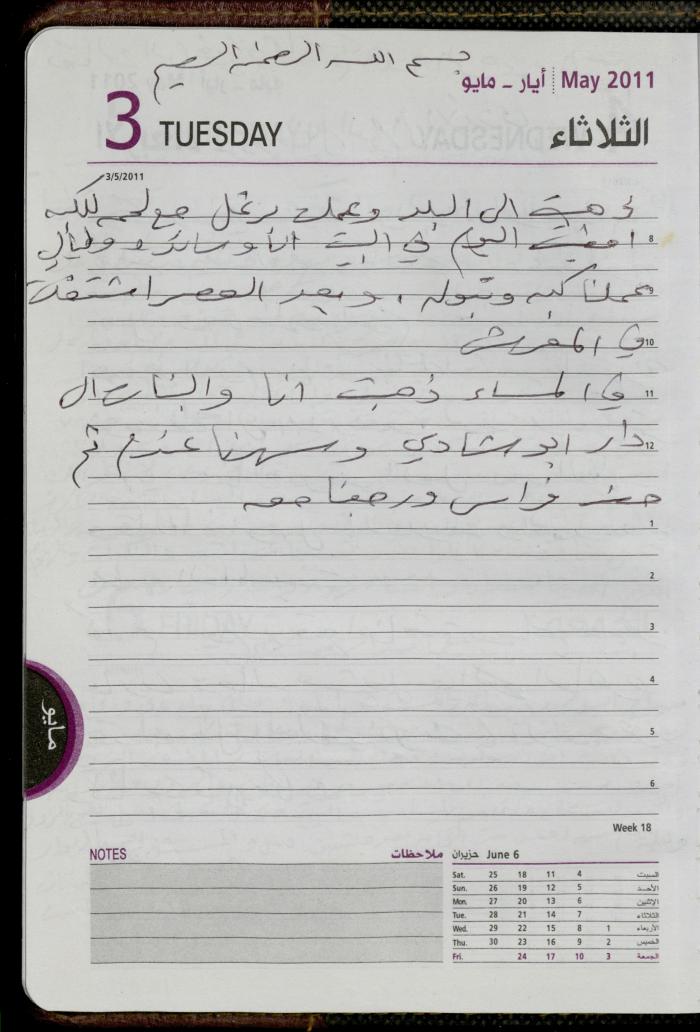 بسم الله الرحمن الرحيم
أيار - مايو May 2011
3 TUESDAY الثلاثاء
3/5/2011
ذهبت الى البلد وعملت برغل مع لحمه للكبه
8 امضيت اليوم في البيت انا وساندره وليالي
عملنا كبه وتبوله، وبعد العصر اشتغلت
10 في المفرش
11 في المساء ذهبت انا والبنات ال
12 دار ابو شادي وسهرنا عندهم ثم
حضر فراس ورجعنا معه
1
2
3
4
5
6
مايو
Week 18
NOTES ملاحظات
حزيران June 6
Sat. 25 18 11 4 السبت
Sun. 26 19 12 5 الأحد
Mon. 27 20 13 6 الإثنين
Tue. 28 21 14 7 الثلاثاء
Wed. 29 22 15 8 1 الأربعاء
Thu. 30 23 16 9 2 الخميس
Fri. 24 17 10 3 الجمعة